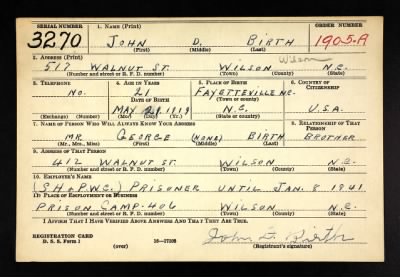 SERIAL NUMBER 1. NAME (Print) ORDER NUMBER
3270 JOHN D. BIRTH 1905-A
(First) (Middle) (Last)
2. ADDRESS (Print) Wilson
517 WALNUT ST. WILSON N.C.
(Number and street or R. F. D. number) (Town) (County) (State)
3. TELEPHONE 4. AGE IN YEARS 5. PLACE OF BIRTH 6. COUNTRY OF CITIZENSHIP
NO. 21 FAYETTEVILLE NC.
DATE OF BIRTH (Town or county)
MAY 1919 N.C. U.S.A.
(Exchange) (Number) (Mo.) (Day) (Yr.) (State or country)
7. NAME OF PERSON WHO WILL ALWAYS KNOW YOUR ADDRESS 8. RELATIONSHIP OF THAT PERSON
MR. GEORGE (NONE) BIRTH BROTHER
(Mr., Mrs., Miss) (First) (Middle) (Last)
9. ADDRESS OF THAT PERSON
412 WALNUT ST. WILSON N.C.
(Number and street or R. F. D. number) (Town) (County) (State)
10. EMPLOYER'S NAME
(S.H. & P.W.C.) PRISONER UNTIL JAN. 8 1941.
11. PLACE OF EMPLOYMENT OR BUSINESS
PRISON CAMP. 406 WILSON N.C.
(Number and street or R. F. D. number) (Town) (County) (State)
I AFFIRM THAT I HAVE VERIFIED ABOVE ANSWERS AND THAT THEY ARE TRUE.
REGISTRATION CARD
D. S. S. Form 1 (over) 16—17105 John D. Birth
(Registrant's signature)